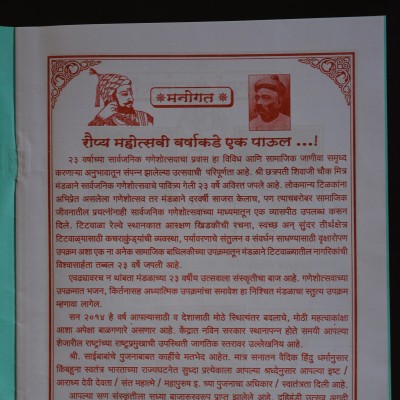 ❋मनोगत❋
रौप्य महोत्सवी वर्षाकडे एक पाऊल ...!
२३ वर्षाच्या सार्वजनिक गणेशोत्सवाचा प्रवास हा विविध आणि सामाजिक जाणीवा समृध्द
करणाऱ्या अनुभवातून संपन्न झालेल्या उत्सवाची परिपूर्णता आहे. श्री छत्रपती शिवाजी चौक मित्र
मंडळाने सार्वजनिक गणेशोत्सवाचे पावित्र्य गेली २३ वर्षे अविरत जपले आहे. लोकमान्य टिळकांना
अभिप्रेत असलेला गणेशोत्सव तर मंडळाने दरवर्षी साजरा केलाच, पण त्याचबरोबर सामाजिक
जीवनातील प्रयत्नांनाही सार्वजनिक गणेशोत्सवाच्या माध्यमातून एक व्यासपीठ उपलब्ध करून
दिले. टिटवाळा रेल्वे स्थानकात आरक्षण खिडकीची रचना, स्वच्छ अन् सुंदर तीर्थक्षेत्र
टिटवाळ्यासाठी कचराकुंड्यांची व्यवस्था, पर्यावरणाचे संतुलन व संवर्धन साधण्यासाठी वृक्षारोपण
उपक्रम अशा एक ना अनेक सामाजिक बांधिलकीच्या उपक्रमातून मंडळाने टिटवाळ्यातील नागरिकांची
विश्वासार्हता तब्बल २३ वर्षे जपली आहे.
एवढ्यावरच न थांबता मंडळाच्या २३ वर्षीय उत्सवाला संस्कृतीचा बाज आहे. गणेशोत्सवाच्या
उपक्रमात भजन, किर्तनासह अध्यात्मिक उपक्रमांचा समावेश हा निश्चित मंडळाचा स्तुत्य उपक्रम
म्हणावा लागेल.
सन २०१४ हे वर्ष आपल्यासाठी व देशासाठी मोठे स्थित्यंतर बदलाचे, मोठी महत्वाकांक्षा
आशा अपेक्षा बाळगणारे असणार आहे. केंद्रात नविन सरकार स्थानापन्न होते समयी आपल्या
शेजारील राष्ट्रांच्या राष्ट्रप्रमुखाची उपस्थिती जागतिक स्तरावर उल्लेखनिय आहे.
श्री. साईबाबांचे पुजनाबाबत काहींचे मतभेद आहेत. मात्र सनातन वैदिक हिंदु धर्मानुसार
किंबहुना स्वतंत्र भारताच्या राज्यघटनेत सुध्दा प्रत्येकाला आपल्या श्रध्देनुसार आपल्या इष्ट /
आराध्य देवी देवता / संत महात्मे / महापुरुष इ. च्या पुजनाचा अधिकार / स्वातंत्रता दिली आहे.
आपल्या सण संस्कृतीला सध्या बाजारुस्वरुप प्राप्त झालेले आहे. दहिहंडी उत्सव अगदी